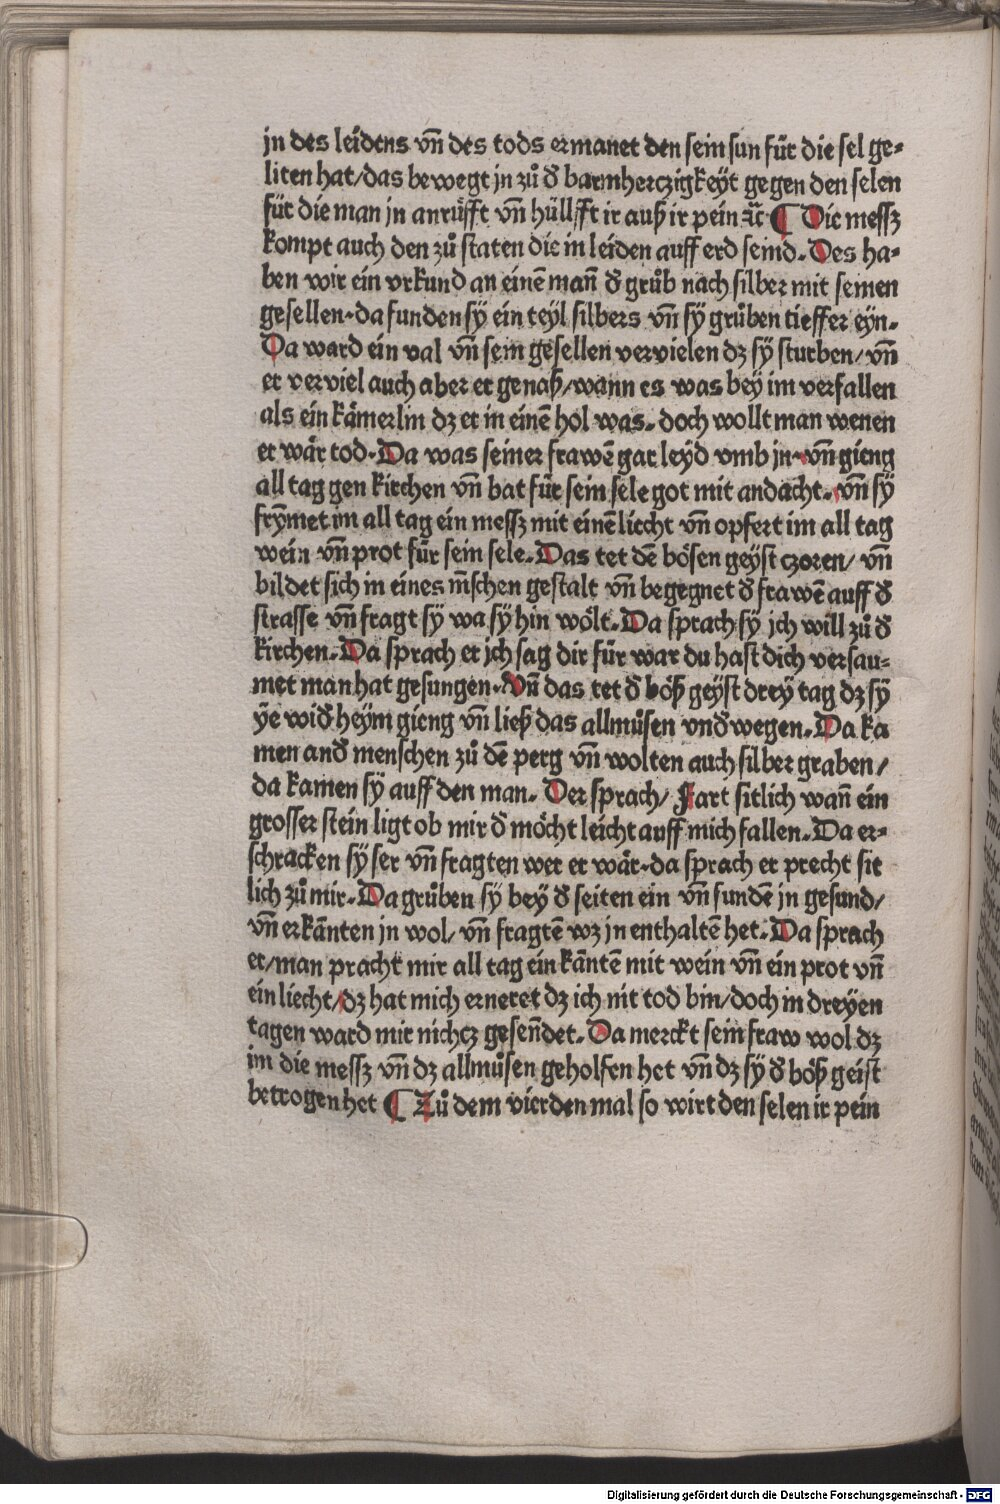 jn des leidens vñ des tods ermanet den sein sun für die sel ge⸗
liten hat/das bewegt jn zů đ barmherczigkeÿt gegen den selen
für die man jn anrüfft vñ hüllfft ir auß ir pein ꝛc̃ ¶ Die messz
kompt auch den zů staten die in leiden auff erd seind. Des ha⸗
ben wir ein vrkund an einē mañ đ grůb nach silber mit seinen
gesellen. da funden sÿ ein teÿl silbers vñ sÿ grůben tieffer eÿn.
Da ward ein val vñ sein gesellen vervielen dz sÿ sturben/ vñ
er verviel auch aber er genaß/wann es was beÿ im verfallen
als ein kämerlin dz er in einē hol was. doch wollt man wenen
er wär tod. Da was seiner frawē gar leÿd vmb jn. vñ gieng
all tag gen kirchen vñ bat für sein sele got mit andacht. vñ sÿ
frÿmet im all tag ein messz mit einē liecht vñ opfert im all tag
wein vñ prot für sein sele. Das tet dē bösen geÿst czoren/ vñ
bildet sich in eines m̃schen gestalt vñ begegnet đ frawē auff đ
strasse vñ fragt sÿ wa sÿ hin wölt. Da sprach sÿ jch will zů đ
kirchen. Da sprach er jch sag dir für war du hast dich versau⸗
met man hat gesungen. Vñ das tet đ böß geÿst dreÿ tag dz sÿ
ÿe wiđ heÿm gieng vñ ließ das allmůsen vnđwegen. Da ka
men anđ menschen zů dē perg vñ wolten auch silber graben/
da kamen sÿ auff den man. Der sprach/ Fart sitlich wañ ein
grosser stein ligt ob mir đ möcht leicht auff mich fallen. Da er⸗
schracken sÿ ser vñ fragten wer er wär. da sprach er precht sit
lich zů mir. Da grůben sÿ beÿ đ seiten ein vñ fundē jn gesund/
vñ erkānten jn wol/ vñ fragtē wz jn enthaltē het. Da sprach
er/man pracht mir all tag ein kāntē mit wein vñ ein prot vñ
ein liecht/dz hat mich erneret dz ich nit tod bin/doch in dreÿen
tagen ward mir nichcz geseñdet. Da merckt sein fraw wol dz
im die messz vñ dz allmůsen geholfen het vñ dz sÿ đ böß geist
betrogen het ¶ Zů dem vierden mal so wirt den selen ir pein
Digitalisierung gefördert durch die Deutsche Forschungsgemeinschaft - DFG